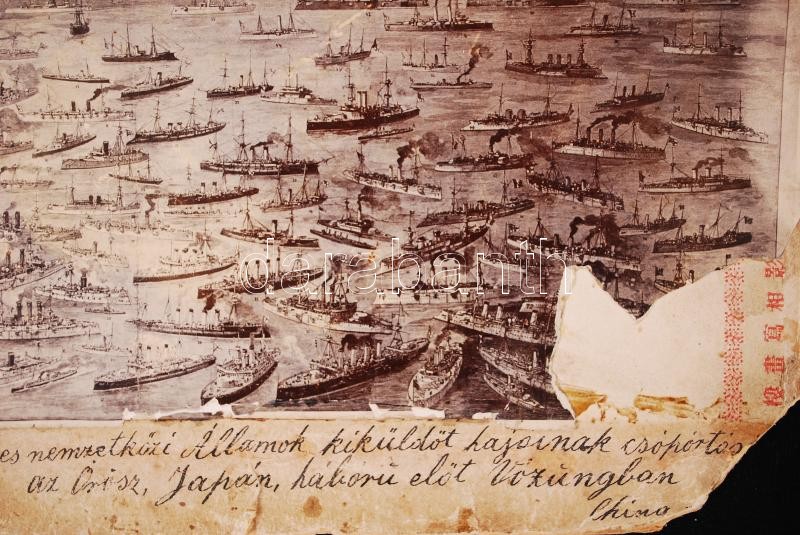 darabanth
影相寫畫楼
es nemzetközi Államok kiküldöt hajoinak csópórtos
az Orosz, Japán, háború előt Vozungban
China